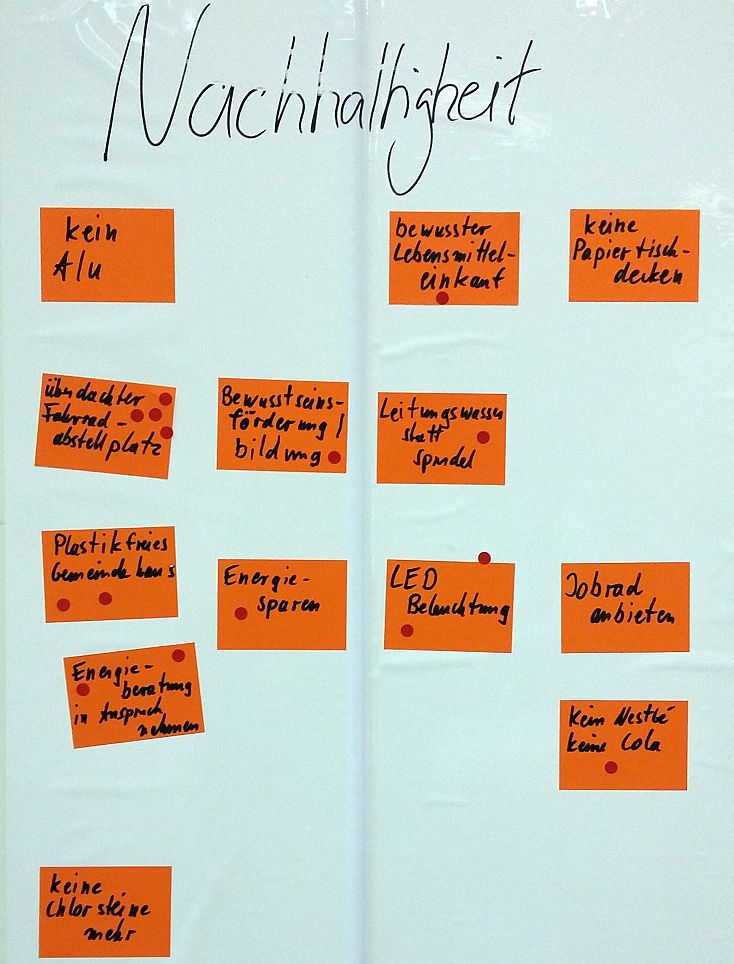 Nachhaltigkeit
kein
Alu
bewusster
Lebensmittel-
einkauf
keine
Papiertisch-
decken
überdachter
Fahrrad-
abstellplatz
Bewusstseins-
förderung /
bildung
Leitungswasser
statt
sprudel
Plastikfreies
Gemeindehaus
Energie-
sparen
LED
Beleuchtung
Jobrad
anbieten
Energie-
beratung
in Anspruch
nehmen
Kein Nestlé
keine Cola
keine
Chlorsteine
mehr